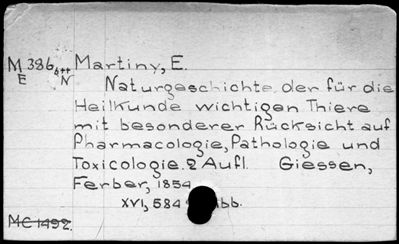 M 386,6++ Martiny, E.
E N Naturgeschichte der für die
Heilkunde wichtigen Thiere
mit besonderer Rücksicht auf
Pharmacologie, Pathologie und
Toxicologie. 2 Aufl. Giessen,
Ferber, 1854
XVI, 584 Abb.
MC 1492.